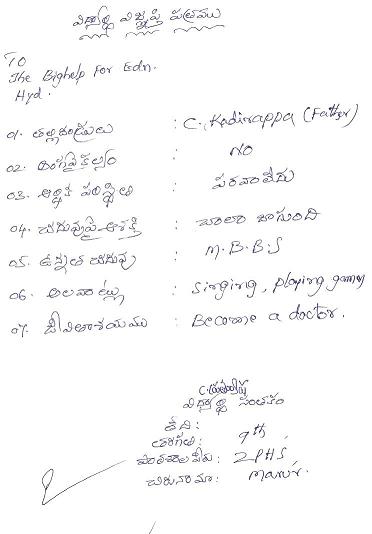 విద్యార్థి విజ్ఞప్తి పత్రము
TO
The Bighelp For Edn.
Hyd.
01. తల్లిదండ్రులు : C. Kadirappa (Father)
02. అంగవైకల్యం : NO
03. ఆర్థిక పరిస్థితి : పరవాలేదు
04. చదువుపై ఆసక్తి : చాలా బాగుంది
05. ఉన్నత చదువు : M.B.B.S
06. అలవాట్లు : Singing, playing games
07. జీవితాశయము : Become a doctor.
విద్యార్థి సంతకం
తేది:
తరగతి: 9th
పాఠశాల పేరు: ZPHS
చిరునామా: